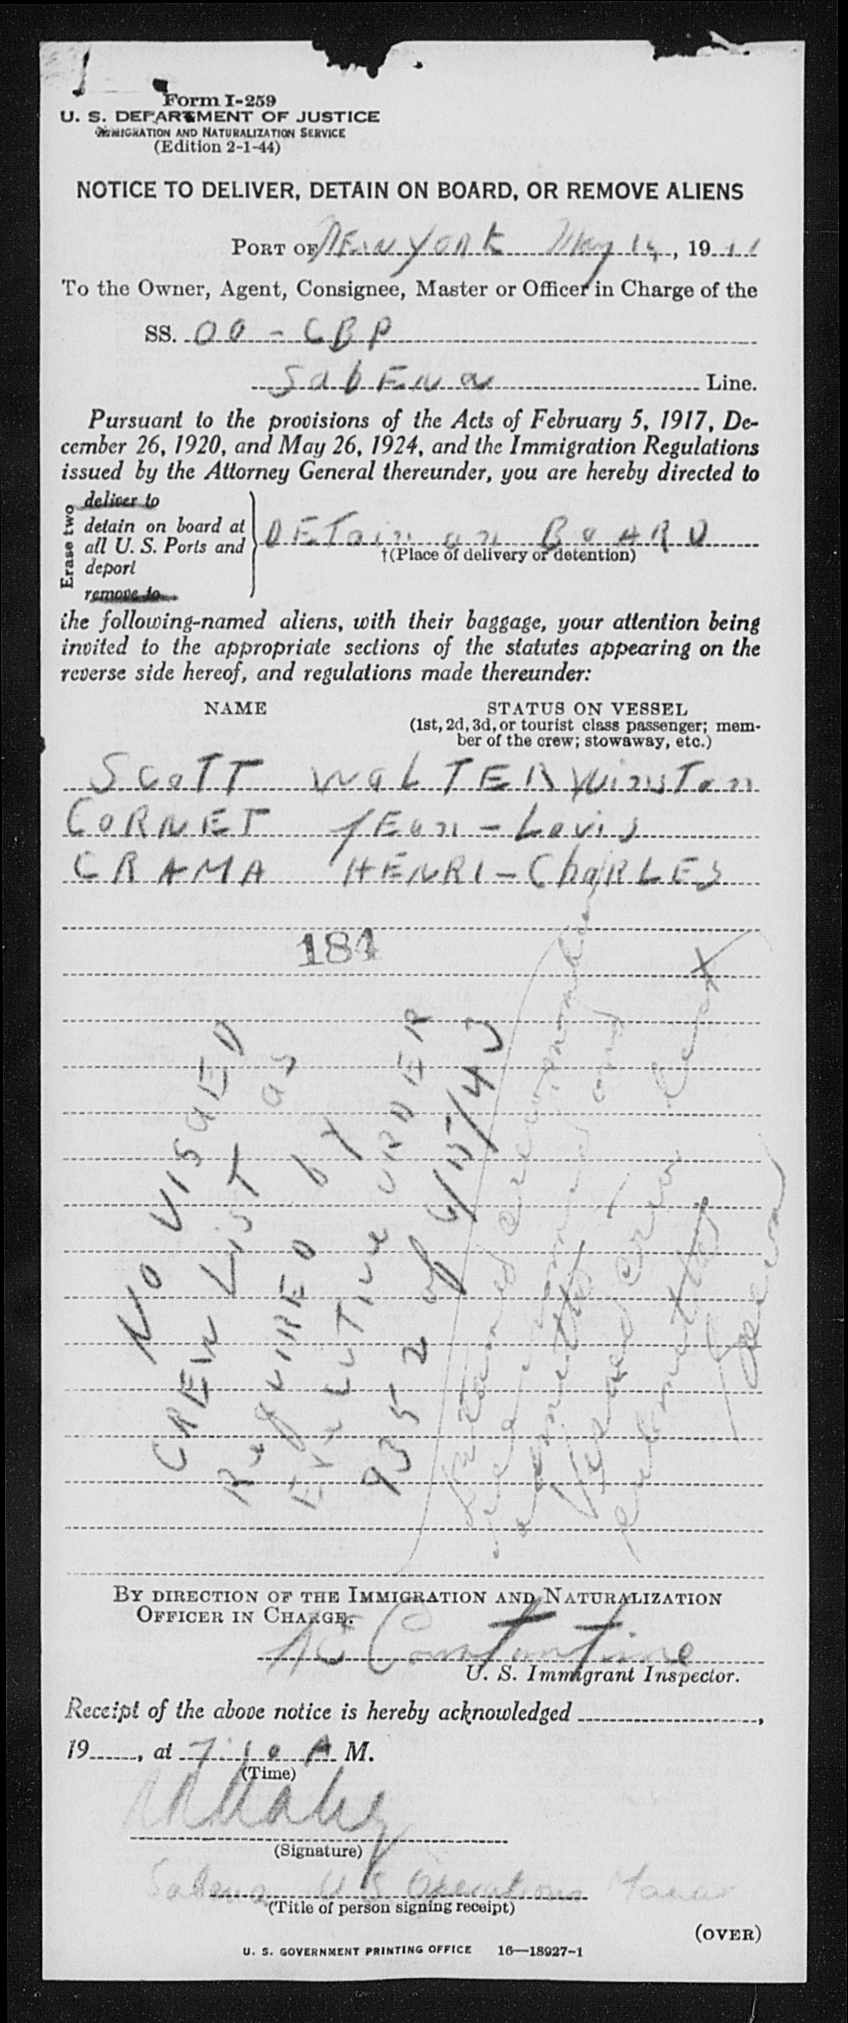 Form I-259
U. S. DEPARTMENT OF JUSTICE
IMMIGRATION AND NATURALIZATION SERVICE
(Edition 2-1-44)
NOTICE TO DELIVER, DETAIN ON BOARD, OR REMOVE ALIENS
PORT OF NEW YORK May 14, 19
To the Owner, Agent, Consignee, Master or Officer in Charge of the
SS. OO - CBP
SabENa Line.
Pursuant to the provisions of the Acts of February 5, 1917, De-
cember 26, 1920, and May 26, 1924, and the Immigration Regulations
issued by the Attorney General thereunder, you are hereby directed to
Erase two
deliver to
detain on board at
all U. S. Ports and
deport
remove to
DETain on BOARD
†(Place of delivery or detention)
the following-named aliens, with their baggage, your attention being
invited to the appropriate sections of the statutes appearing on the
reverse side hereof, and regulations made thereunder:
NAME STATUS ON VESSEL
(1st, 2d, 3d, or tourist class passenger; mem-
ber of the crew; stowaway, etc.)
SCOTT WALTER Winston
CORNET JEan - Louis
CRAMA HENRI - ChaRLES
184
NO VISAED
CREW LIST as
REqUIRED by
EXECUTIVE ORDER
9352 of 6/15/43
Detained crew
and
admitted
Visaed crew
submitted
BY DIRECTION OF THE IMMIGRATION AND NATURALIZATION
OFFICER IN CHARGE.
Constantine
U. S. Immigrant Inspector.
Receipt of the above notice is hereby acknowledged ,
19 , at 7:10 A M.
(Time)
(Signature)
Sabena U S Operations
(Title of person signing receipt)
(OVER)
U. S. GOVERNMENT PRINTING OFFICE 16—18927-1